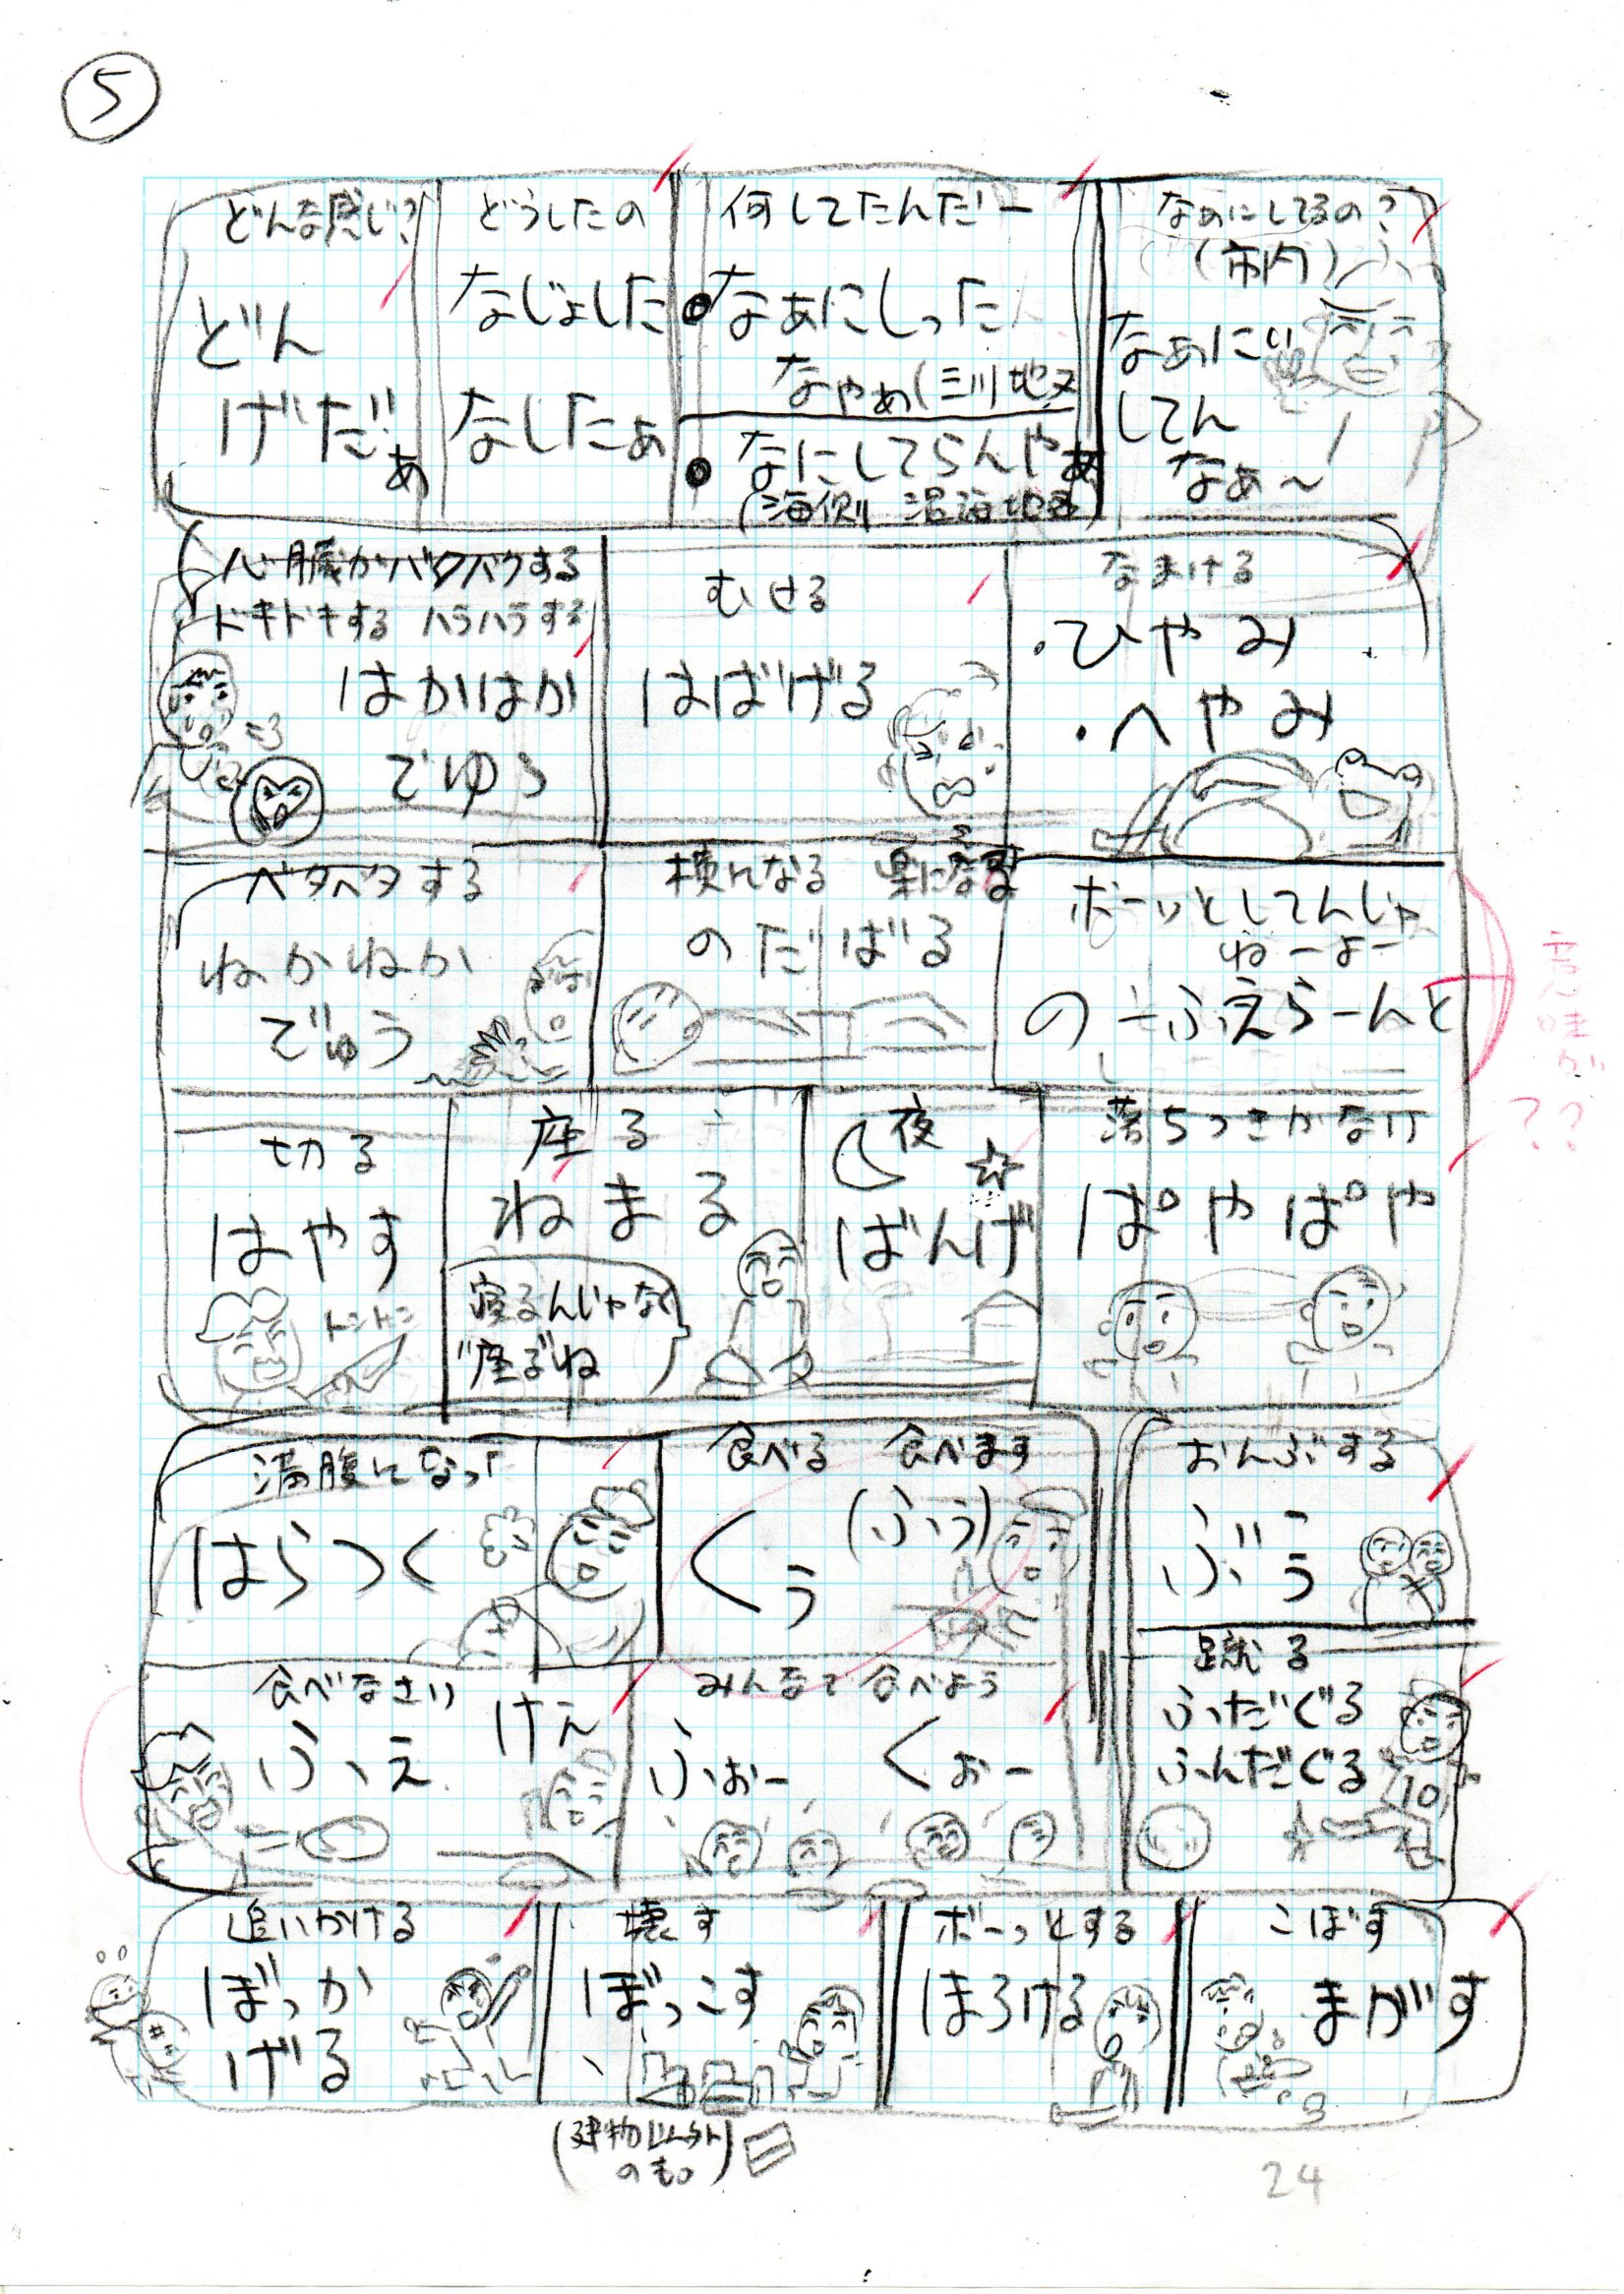 5
どんな感じ?
どん
げだぁ
どうしたの
なじょした
なしたぁ
何してたんだー
●なぁにしった
なやぁ(三川地区
●なにしてらんやぁ
(海側 沿海地区)
なぁにしてるの?
(市内)
なぁにぃ
してん
なぁ~
心臓がバクバクする
ドキドキする ハラハラする
はかはか
でゆう
むせる
はばげる
なまける
・ひやみ
・へやみ
ベタベタする
ねかねか
でゅう
横になる 楽になる
のだばる
ボーッとしてんじゃ
ねーよー
のーふえらーんと
意味が
??
切る
はやす
トントン
座る
ねまる
寝るんじゃなく
"座る"ね
夜
ばんげ
落ちつきがない
ぱやぱや
満腹になって
はらつく
食べる 食べます
くぅ
(ふぅ)
おんぶする
ぶぅ
食べなさい
けぇ
ふぇ
みんなで食べよう
ふぉー くぉー
蹴る
ふだぐる
ふんだぐる
10
追いかける
ぼっか
げる
壊す
ぼっこす
(建物以外
のもの)
ボーっとする
ほろける
こぼす
まがす
24